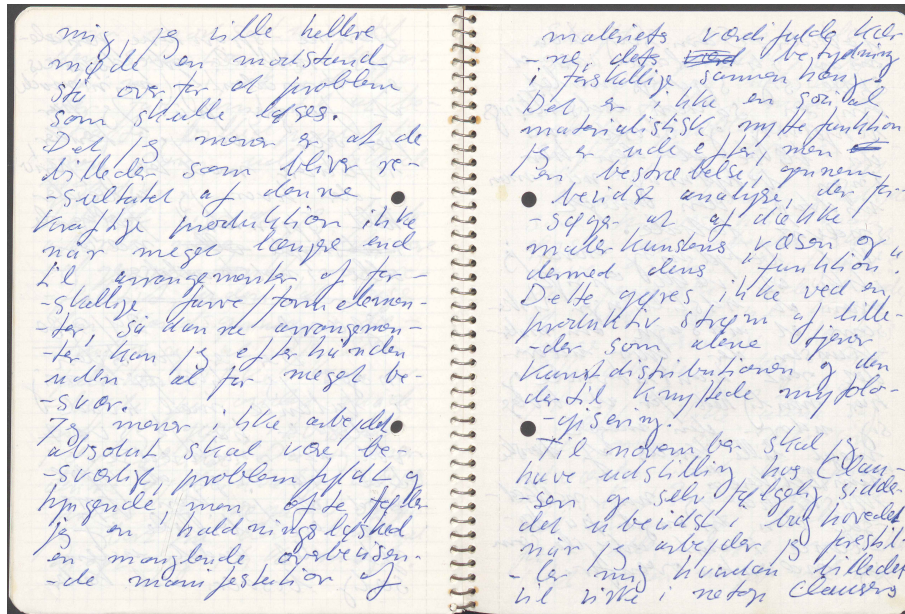 mig, jeg ville hellere
møde en modstand
stå overfor et problem
som skulle løses.
Det jeg mener er at de
billeder som bliver re-
-sultatet af denne
kraftige produktion ikke
når meget længere end
til arrangementer af for-
-skellige farve/formelemen-
-ter, sådanne arrangemen-
-ter kan jeg efterhånden
uden at for meget be-
-svær.
Jeg mener ikke arbejdet
absolut skal være be-
-sværligt, problemfyldt og
tyngende, men ofte føler
jeg en holdningsløshed
en manglende overbevisen-
-de manifestation af
maleriets værdifulde kær
-ne, dets betydning
i forskellige sammenhæng.
Det er ikke en social
materialistisk nyttefunktion
jeg er ude efter, men
en bestræbelse, gennem
bevidst analyse, der for-
-søger at afdække
malerkunstens væsen og
dermed dens "funktion".
Dette gøres ikke ved en
produktiv strøm af bille-
-der som alene tjener
kunstdistributionen og den
dertil knyttede mytolo-
-gisering.
Til november skal jeg
have udstilling hos Clau-
-sen og selvfølgelig sidder
det ubevidst i baghovedet
når jeg arbejder jeg forestil-
-ler mig hvordan billedet
vil virke i netop Clausens